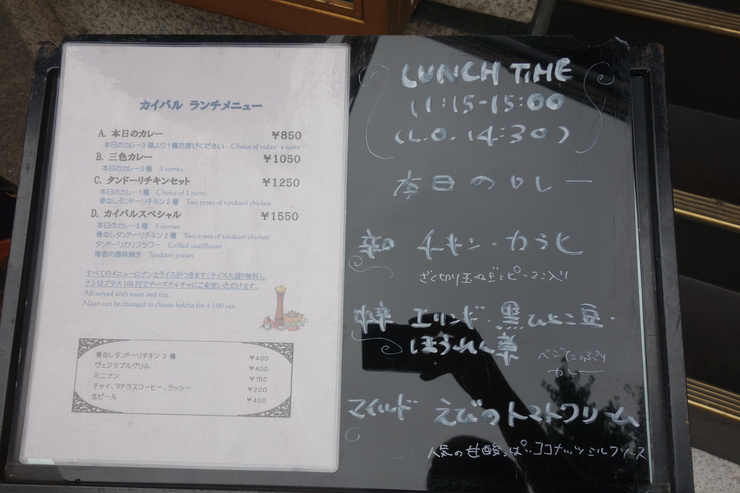 カイバル ランチメニュー
A. 本日のカレー ￥850
本日のカレー3種より1種お選びください Choice of today's curry
B. 三色カレー ￥1050
本日のカレー3種 3 curries
C. タンドーリチキンセット ￥1250
本日のカレー1種 Choice of 1 curry
骨なしタンドーリチキン2種 Two types of tandoori chicken
D. カイバルスペシャル ￥1550
本日のカレー3種 3 curries
骨なしタンドーリチキン2種 Two types of tandoori chicken
タンドーリカリフラワー Grilled cauliflower
海老の香味焼き Tandoori prawn
すべてのメニューにナンとライスがつきます(ライス大盛り無料)。
ナンはプラス100円でチーズクルチャにご変更いただけます。
All served with naan and rice.
Naan can be changed to cheese kulcha for +100 yen.
骨なしタンドーリチキン2種 ￥400
ヴェジタブルグリル ￥400
ミニナン ￥150
チャイ、マドラスコーヒー、ラッシー ￥200
生ビール ￥400
LUNCH TIME
11:15-15:00
(L.O. 14:30)
本日のカレー
辛口 チキン・カラヒ
ざく切り玉ねぎとピーマン入り
中辛 エリンギ・黒ひよこ豆・
ほうれん草
ベジたっぷり
カレー
マイルド えびのトマトクリーム
人気の甘酸っぱいココナッツミルクソース